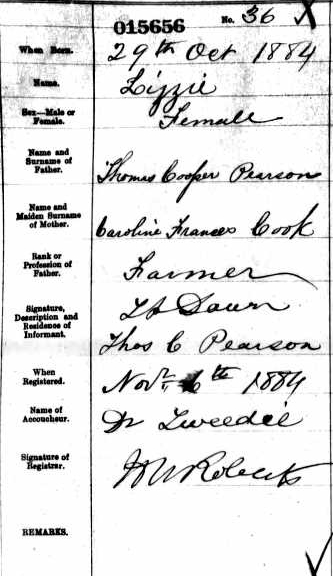 015656 No. 36 X
When Born. 29th Oct 1884
Name. Lizzie
Sex—Male or Female. Female
Name and Surname of Father. Thomas Cooper Pearson
Name and Maiden Surname of Mother. Caroline Frances Cook
Rank or Profession of Father. Farmer
Signature, Description and Residence of Informant.
Thos C Pearson
When Registered. Novr. 6th 1884
Name of Accoucheur. Dr Tweedie
Signature of Registrar. Roberts
REMARKS.